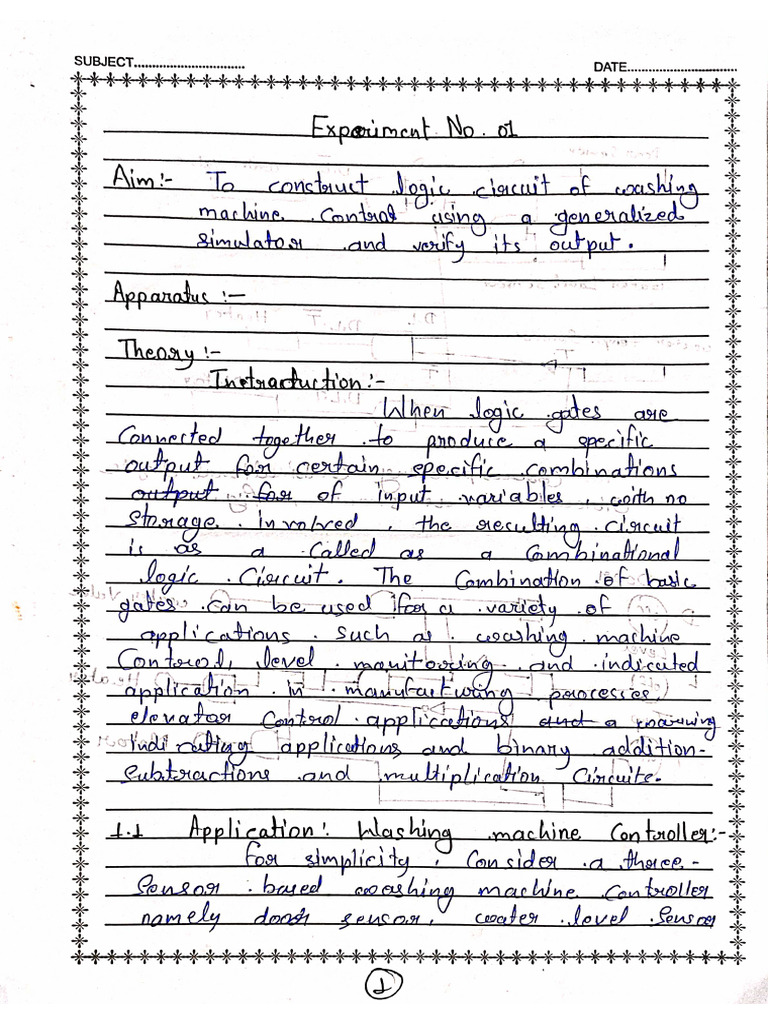 SUBJECT............................... DATE...............................
Experiment No. 01
Aim:- To construct logic circuit of washing
machine control using a generalized
simulator and verify its output.
Apparatus :-
Theory :-
Intraduction :-
When logic gates are
Connected together to produce a specific
output for certain specific combinations
output for of input variables, with no
storage involved, the resulting circuit
is as a called as a combinational
logic circuit. The Combination of basic
gates can be used for a variety of
applications such as washing machine
Control, level manitoring and indicated
application in manufacturing processes,
elevator control applications and a warning
indicating applications and binary addition-
subtractions and multiplication Circuits.
1.1 Application: Washing machine Controller:-
for simplicity, Consider a three-
Sensor based washing machine controller
namely door sensor, water level sensor
1